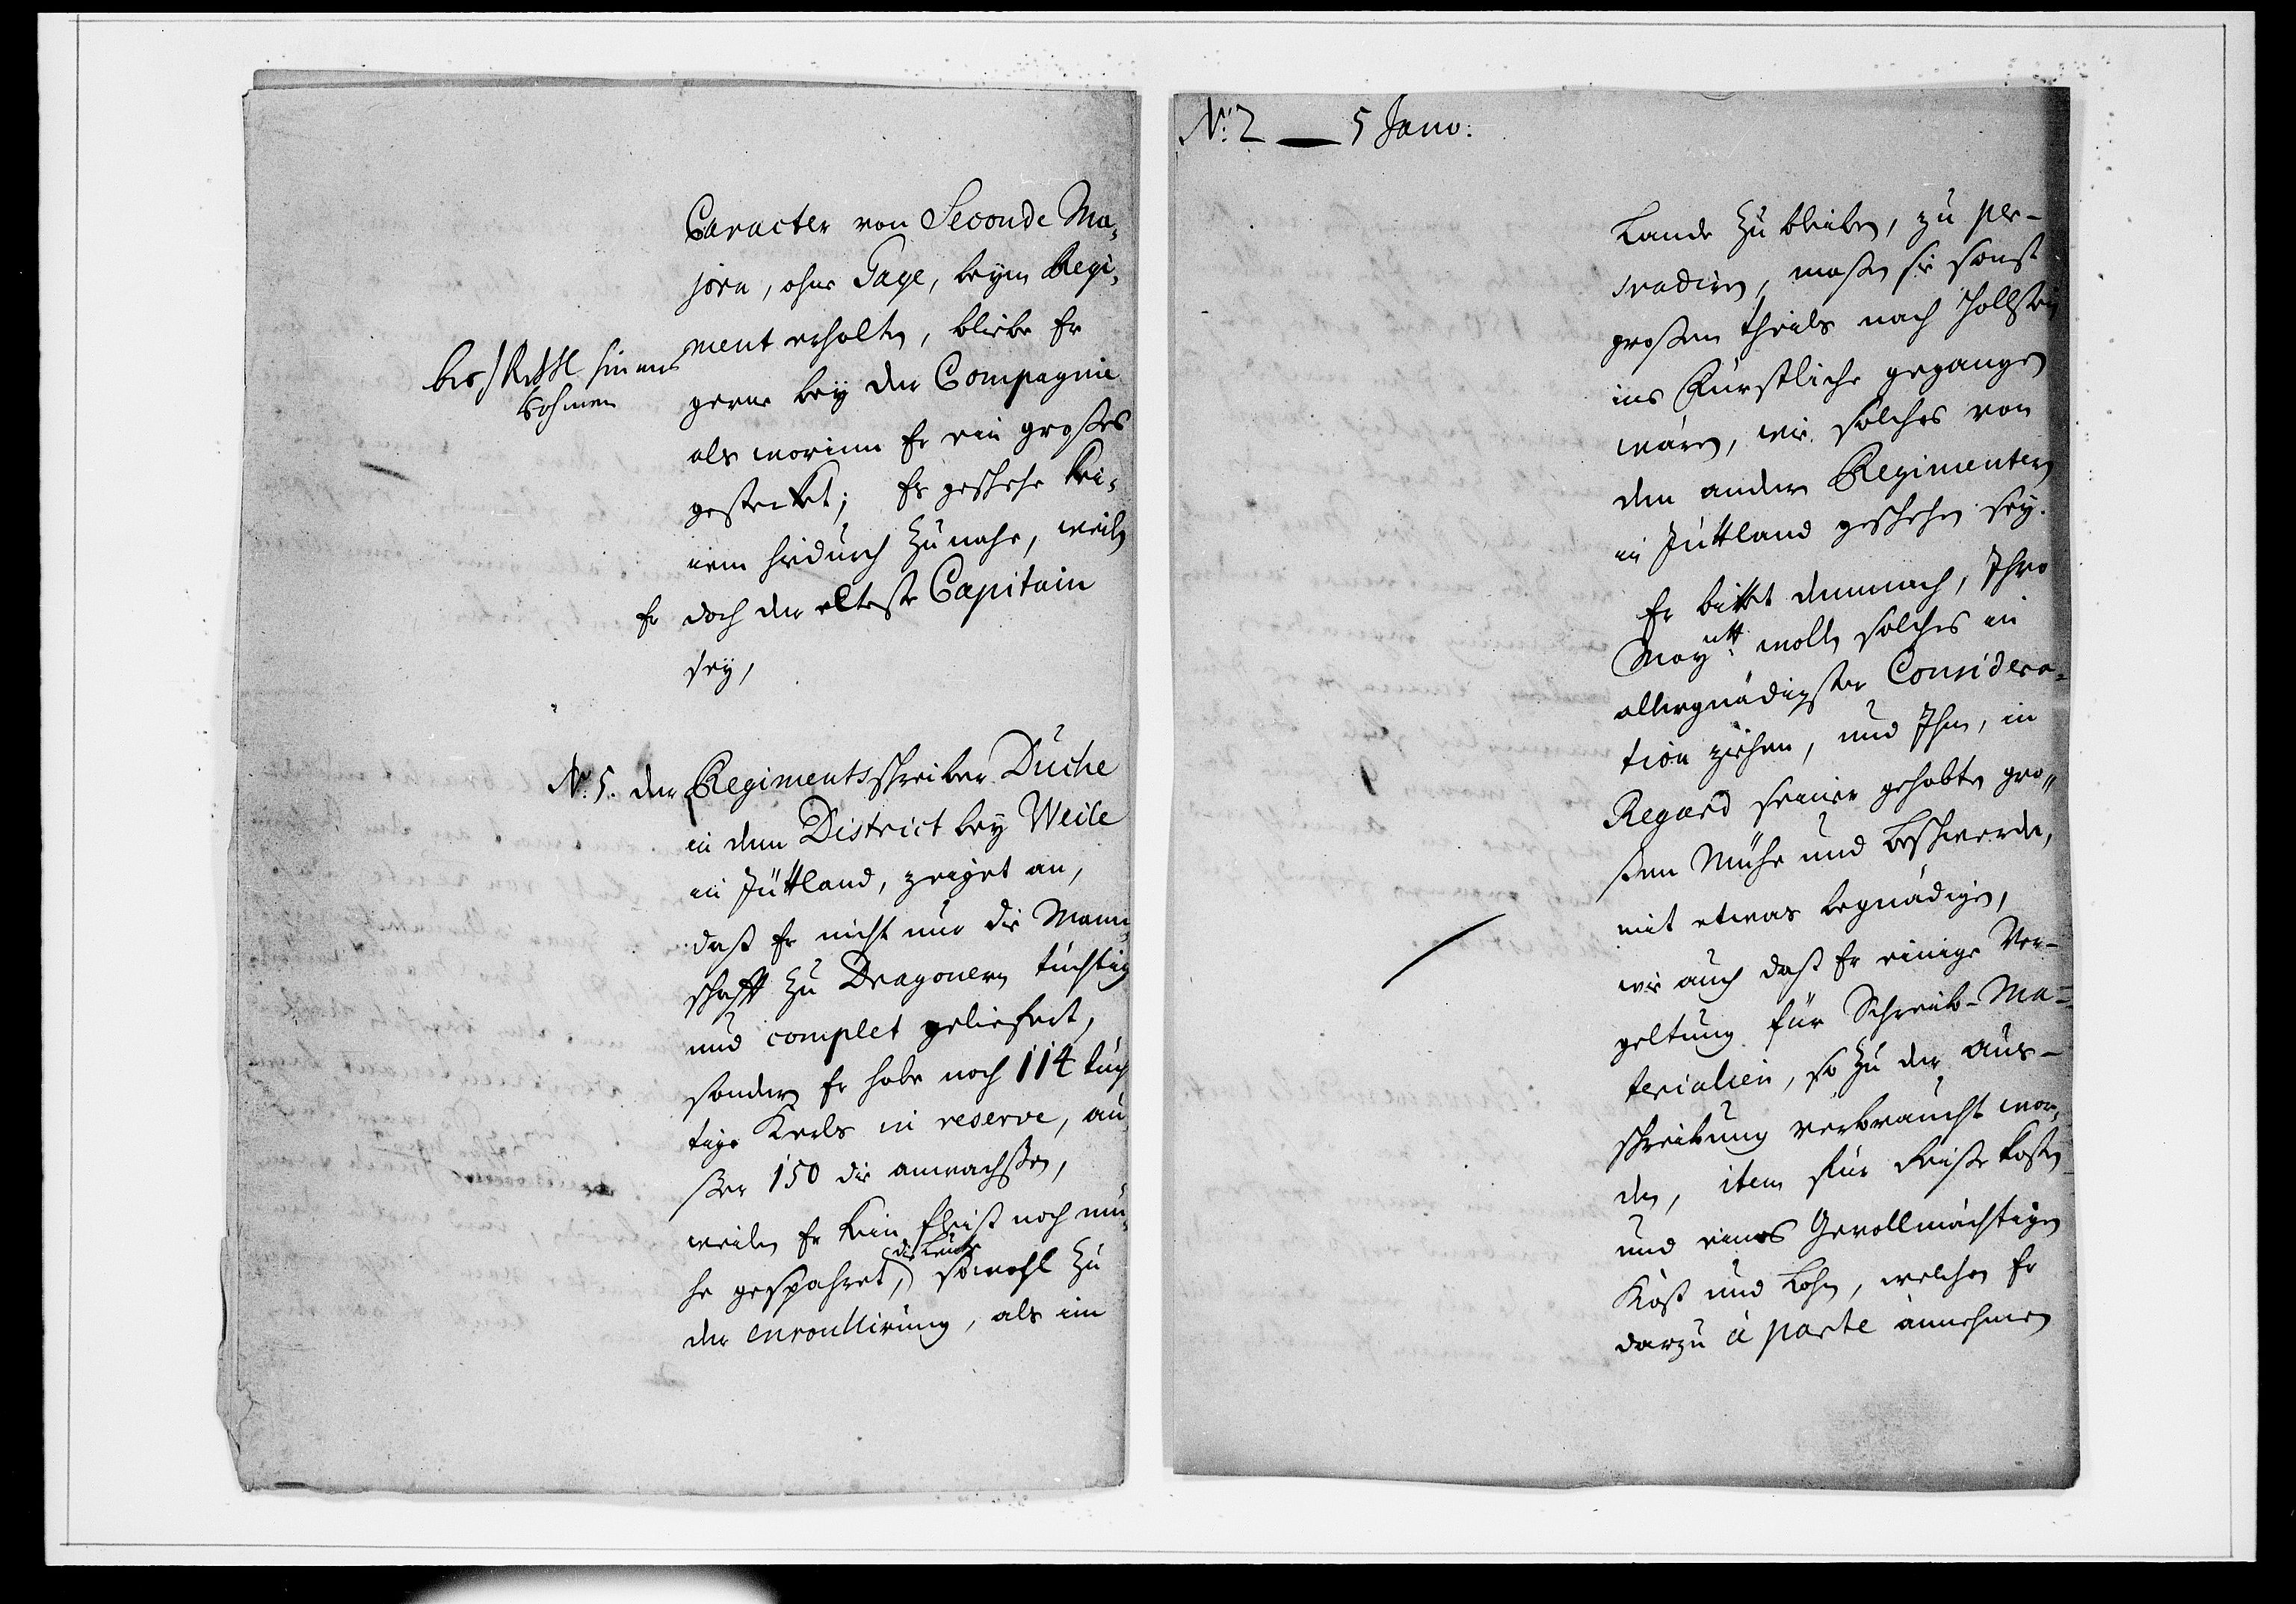 Caracter von Seconde Ma„
joru, ohne Gage, beym Regi„
ment erhalten, bliebe Er
gerne bey der Compagnie
als worinn Er ein großes
gestecket; Es geschehe kei„
nem hiedurch zu nahe, weiln
Er doch der elteste Capitain
sey,
N: 5. der Regimentsschreiber Duche
in dem District bey Weile
in Jüttland, zeiget an,
daß Er nicht nur die Mann„
schafft zu Dragonern tüchtig
und complet geliefert,
sondern Er habe noch 114 tüch
tige Kerls in reserve, au„
ßer 150 die anwachßen,
weiln Er kein Fleiß noch mü„
he gespahret, die Leute sowohl zu
der enroullirung, als im
N: 2 — 5 Janv:
Lande zu bleiben, zu per-
svadiren, maßen sie sonst
großen theils nach Hollstein
ins Fürstliche gegangen
wären, wie solches von
den andern Regimentern
in Jüttland geschehen sey.
Er bittet demnach, Ihro
Maytt: wolln solches in
allergnädigster Considera„
tion ziehen, und Ihm, in
Regard seiner gehabten gro„
ßen Mühe und Beschwerde,
mit etwas begnädigen,
wie auch daß Er einige Ver-
geltung für Schreib-Ma-
terialien, so zu der aus-
schreibung verbraucht wor„
den, item für Reiße kosten
und eines Gevollmächtigen
Kost und Lohn, welchen Er
darzu à parte annehmen